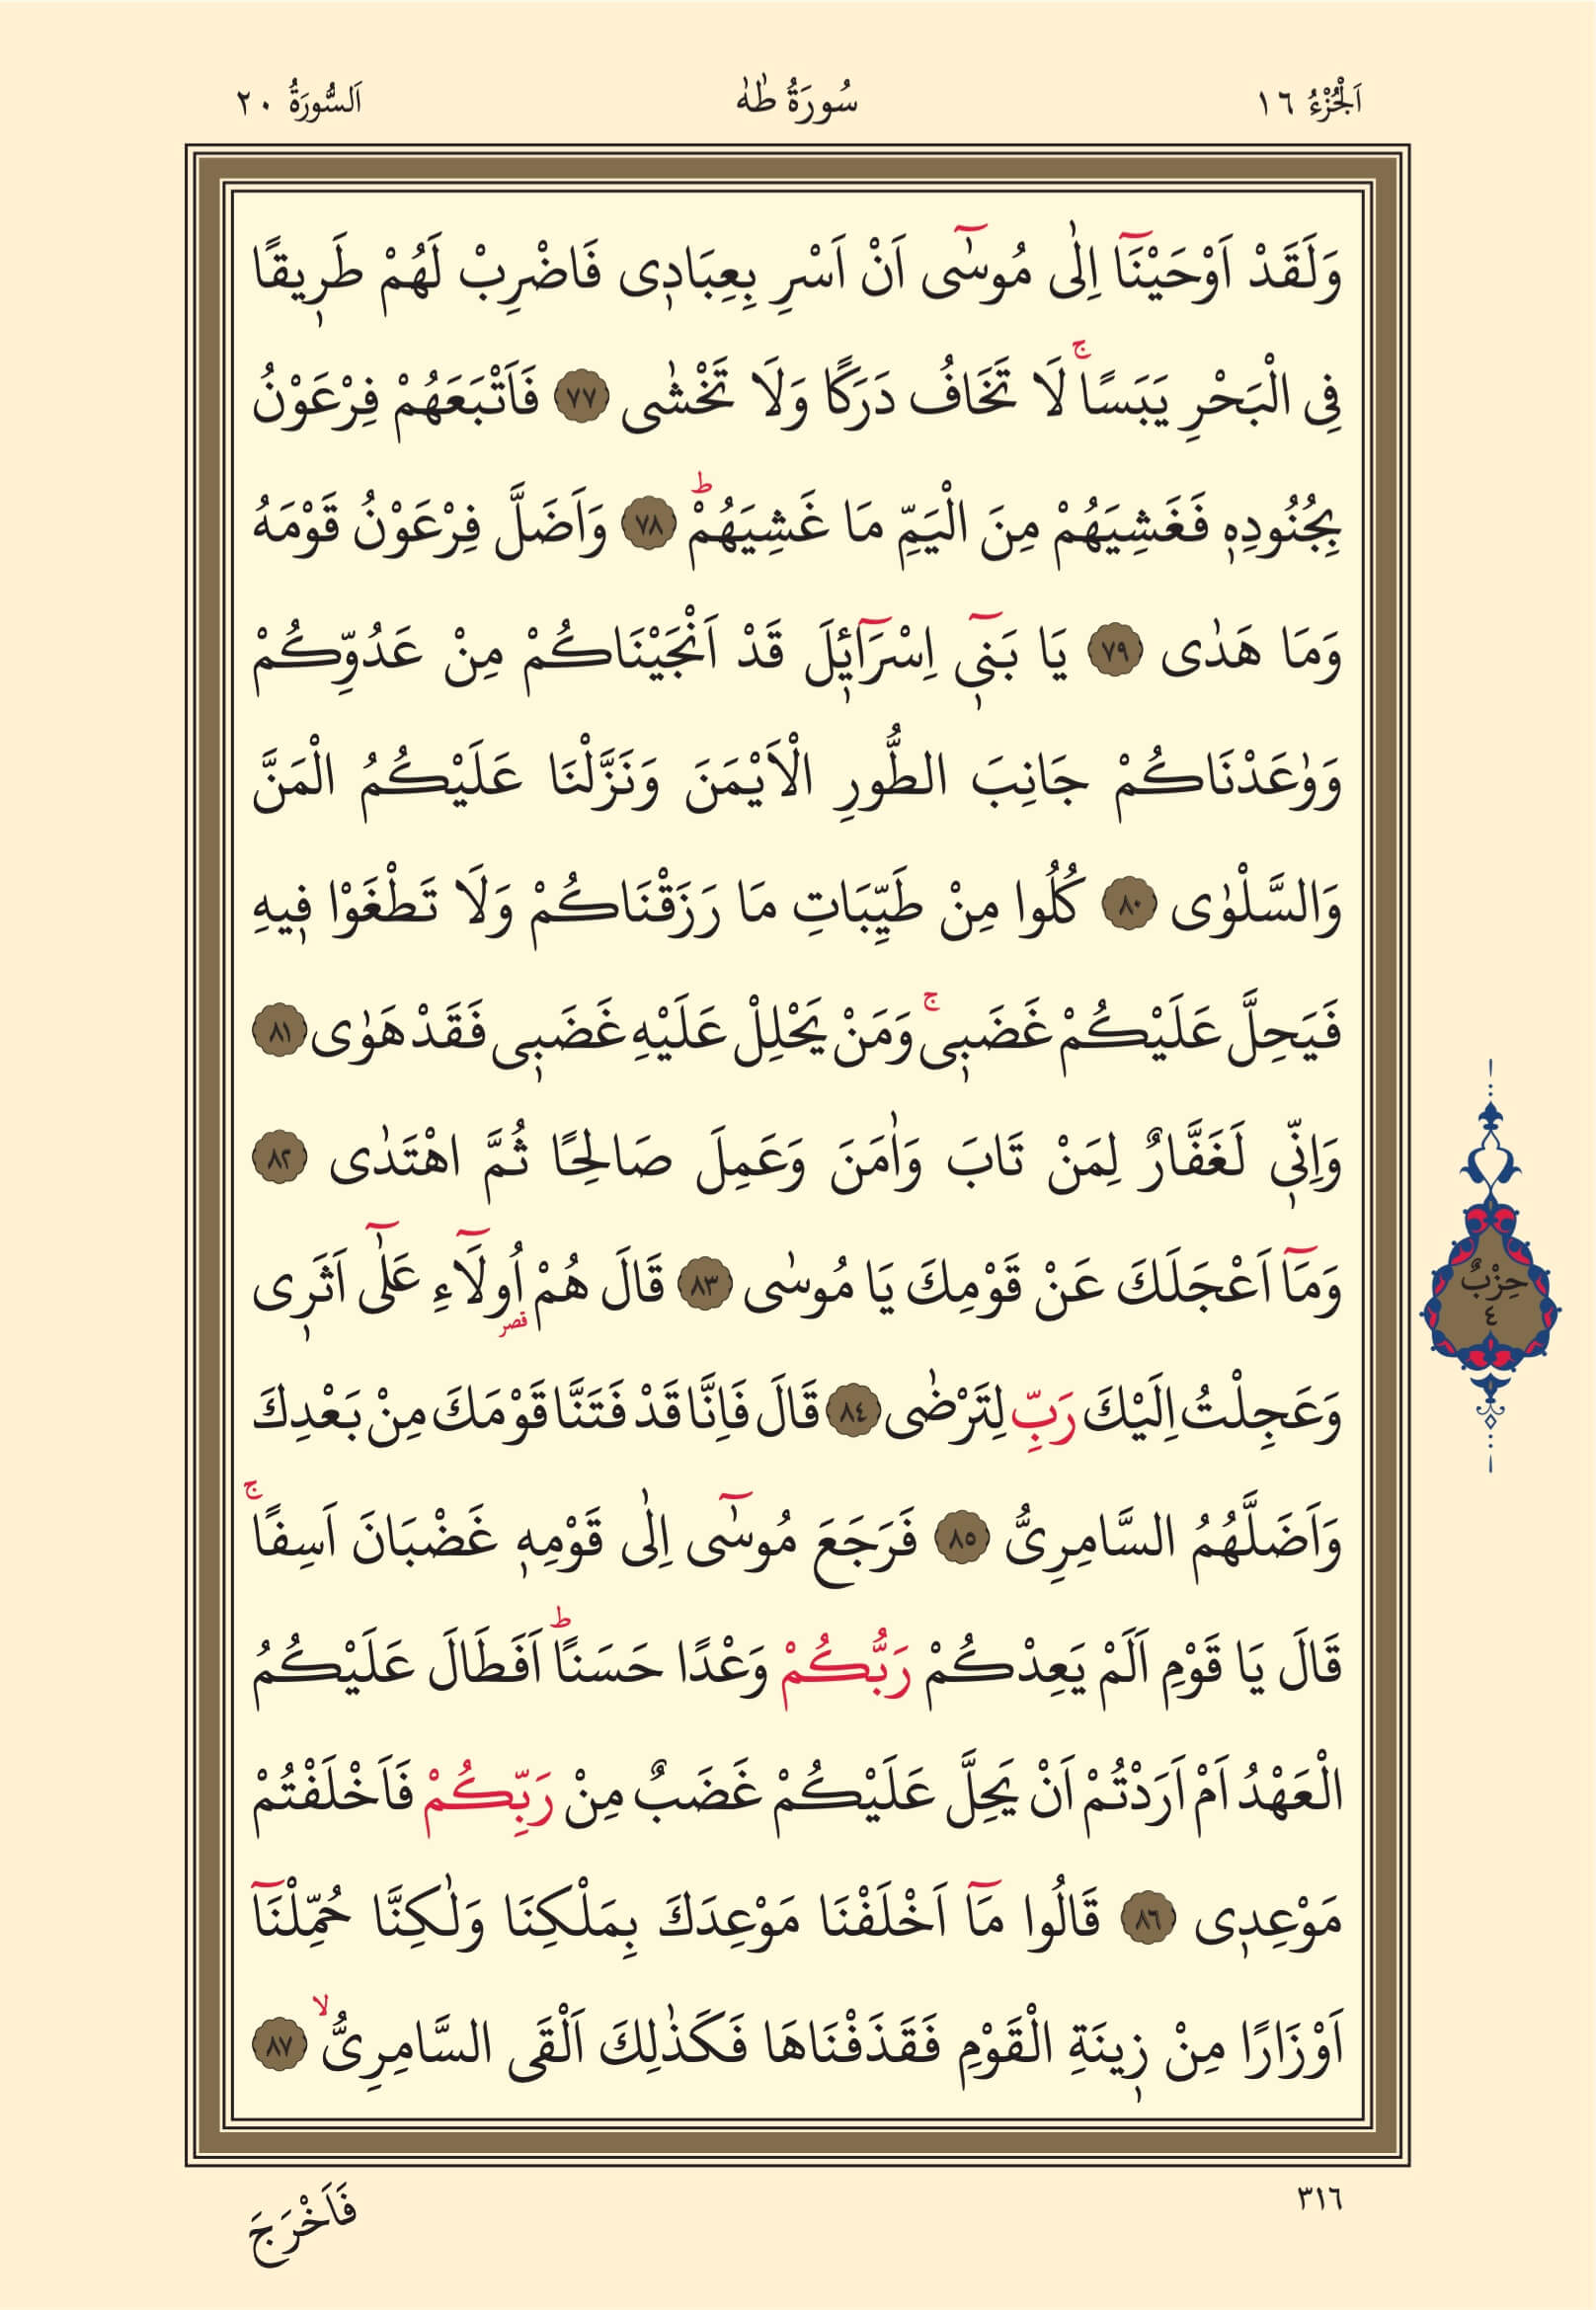 اَلْجُزْءُ ١٦ سُورَةُ طٰهٰ اَلسُّورَةُ ٢٠
وَلَقَدْ اَوْحَيْنَٓا اِلٰى مُوسٰٓى اَنْ اَسْرِ بِعِبَادٖى فَاضْرِبْ لَهُمْ طَرٖيقًا
فِى الْبَحْرِ يَبَسًاۚ لَا تَخَافُ دَرَكًا وَلَا تَخْشٰى ٧٧ فَاَتْبَعَهُمْ فِرْعَوْنُ
بِجُنُودِهٖ فَغَشِيَهُمْ مِنَ الْيَمِّ مَا غَشِيَهُمْؕ ٧٨ وَاَضَلَّ فِرْعَوْنُ قَوْمَهُ
وَمَا هَدٰى ٧٩ يَا بَنٖٓى اِسْرَٓائٖلَ قَدْ اَنْجَيْنَاكُمْ مِنْ عَدُوِّكُمْ
وَوٰعَدْنَاكُمْ جَانِبَ الطُّورِ الْاَيْمَنَ وَنَزَّلْنَا عَلَيْكُمُ الْمَنَّ
وَالسَّلْوٰى ٨٠ كُلُوا مِنْ طَيِّبَاتِ مَا رَزَقْنَاكُمْ وَلَا تَطْغَوْا فٖيهِ
فَيَحِلَّ عَلَيْكُمْ غَضَبٖىۚ وَمَنْ يَحْلِلْ عَلَيْهِ غَضَبٖى فَقَدْ هَوٰى ٨١
وَاِنّٖى لَغَفَّارٌ لِمَنْ تَابَ وَاٰمَنَ وَعَمِلَ صَالِحًا ثُمَّ اهْتَدٰى ٨٢
وَمَٓا اَعْجَلَكَ عَنْ قَوْمِكَ يَا مُوسٰى ٨٣ قَالَ هُمْ اُولَٓاءِ عَلٰٓى اَثَرٖى
قصر
وَعَجِلْتُ اِلَيْكَ رَبِّ لِتَرْضٰى ٨٤ قَالَ فَاِنَّا قَدْ فَتَنَّا قَوْمَكَ مِنْ بَعْدِكَ
وَاَضَلَّهُمُ السَّامِرِىُّ ٨٥ فَرَجَعَ مُوسٰٓى اِلٰى قَوْمِهٖ غَضْبَانَ اَسِفًاۚ
قَالَ يَا قَوْمِ اَلَمْ يَعِدْكُمْ رَبُّكُمْ وَعْدًا حَسَنًاؕ اَفَطَالَ عَلَيْكُمُ
الْعَهْدُ اَمْ اَرَدْتُمْ اَنْ يَحِلَّ عَلَيْكُمْ غَضَبٌ مِنْ رَبِّكُمْ فَاَخْلَفْتُمْ
مَوْعِدٖى ٨٦ قَالُوا مَٓا اَخْلَفْنَا مَوْعِدَكَ بِمَلْكِنَا وَلٰكِنَّا حُمِّلْنَٓا
اَوْزَارًا مِنْ زٖينَةِ الْقَوْمِ فَقَذَفْنَاهَا فَكَذٰلِكَ اَلْقَى السَّامِرِىُّۙ ٨٧
حِزْبٌ
٤
٣١٦ فَاَخْرَجَ